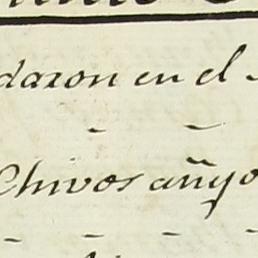 daron en el
Chivos añyo